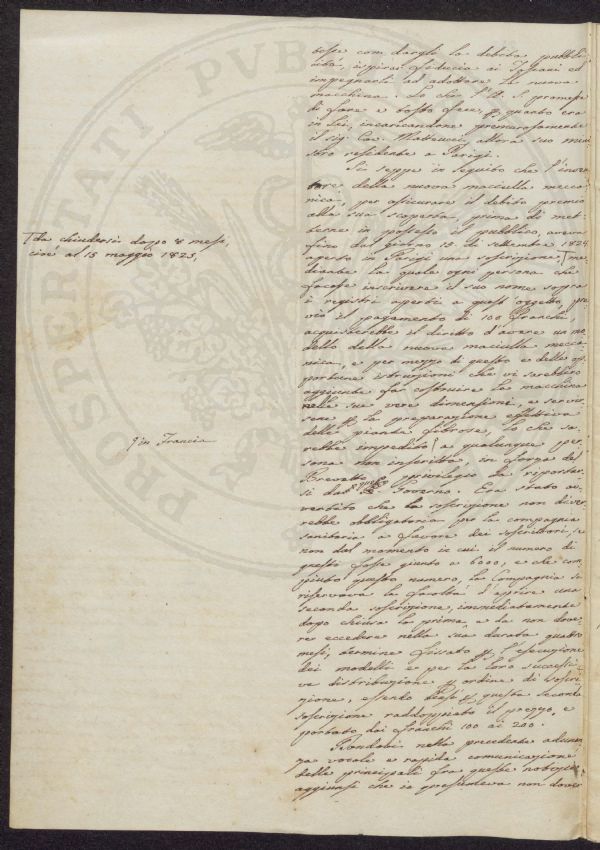 tesse com dargli la debita pubbli-
cità, ispirar fiducia ai Toscani ed
impegnarli ad adottare la nuova
macchina. Lo che V. S. promesse
di fare e tosto fece, p. quanto era
in Lei, incaricandone premurosamente
il sig. Cav. Matteucci allora suo mini
stro residente a Parigi.
Si seppe in seguito che l'inven
tore della nuova maciulla mecca
nica, per assicurare il debito premio
alla sua scoperta, prima di met-
terne in possesso il pubblico, aveva
fino dal giorno 15 di settembre 1824
aperto in Parigi una soscrizione, me
diante la quale ogni persona che
facesse inscrivere il suo nome sopra
i registri aperti a quest'oggetto, pre
vio il pagamento di 100 franchi
acquisterebbe il diritto d'avere un mo
dello della nuova maciulla mecca
nica, e per mezzo di questo e delle op
portune istruzioni che vi sarebbero
aggiunte far costruire la macchina
nelle sue vere dimensioni, e servir
sene p. la preparazione effettiva
delle piante fibrose, lo che sa-
rebbe impedito a qualunque per
sona non inscritta, in forza del
Brevetto privilegio da riportar
si dal Governo. Era stato av
vertito che la soscrizione non diver
rebbe obbligatoria per la compagnia
sanitaria a favore dei soscrittori, se
non dal momento in cui il numero di
questi fosse giunto a 6000, e che com
piuto questo numero, la Compagnia si
riservava la facoltà d'aprire una
seconda soscrizione, immediatamente
dopo chiusa la prima, e da non dove
re eccedere nella sua durata quattro
mesi, termine fissato p. l'esecuzione
dei modelli e per la loro successi
va distribuzione p. ordine di soscri
zione, essendo p. questa seconda
soscrizione raddoppiato il prezzo, e
portato dai franchi 100 ai 200.
nella precedente adunan
za vocale e rapida comunicazione
delle principali fra queste notizie
aggiunsi che io presumeva non dover
da chiudersi dopo 8 mesi,
cioè al 15 maggio 1825,
in Francia
PROSPERITATI PUBL